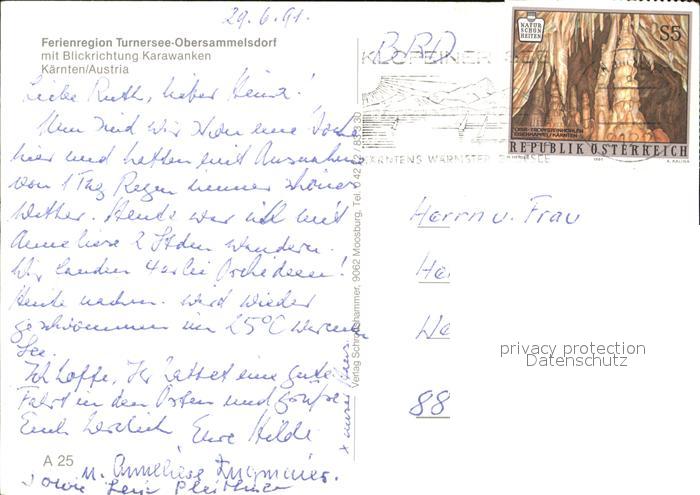 29.6.91.
Ferienregion Turnersee-Obersammelsdorf
mit Blickrichtung Karawanken
Kärnten/Austria
Liebe Ruth, lieber Heinz!
Nun sind wir schon eine Woche
hier und hatten mit Ausnahme
von 1 Tag Regen immer schönes
Wetter. Heute war ich mit
Anneliese 2 Stden wandern.
Wir fanden 4erlei Orchideen!
Heute nachm. wird wieder
geschwommen im 25°C warmen
See.
Ich hoffe, Ihr hattet eine gute
Fahrt in den Osten und grüße
Euch herzlich Eure Hilde
u. Anneliese
sowie
A 25
Verlag Schretthammer, 9062 Moosburg, Tel. 0 42 72 / 83 3 30
BRD
KLOPEINER SEE
KÄRNTENS WÄRMSTER BADESEE
NATUR
SCHÖN
HEITEN
S5
OBIR-TROPFSTEINHÖHLEN
EISENKAPPEL/KÄRNTEN
REPUBLIK ÖSTERREICH
1991
Herrn u. Frau
He
We
88
privacy protection
Datenschutz